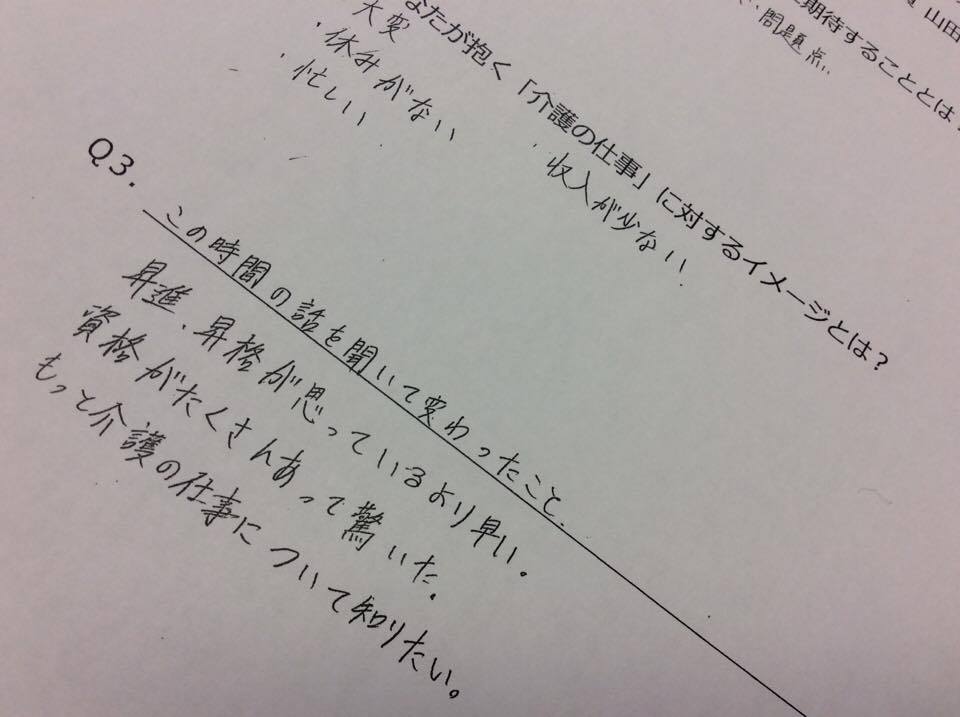 山田
期待することとは
問題点
なたが抱く「介護の仕事」に対するイメージとは？
大変
・休みがない
・忙しい
・収入が少ない
Q3.
この時間の話を聞いて変わったこと.
昇進、昇格が思っているより早い。
資格がたくさんあって驚いた。
もっと介護の仕事について知りたい。